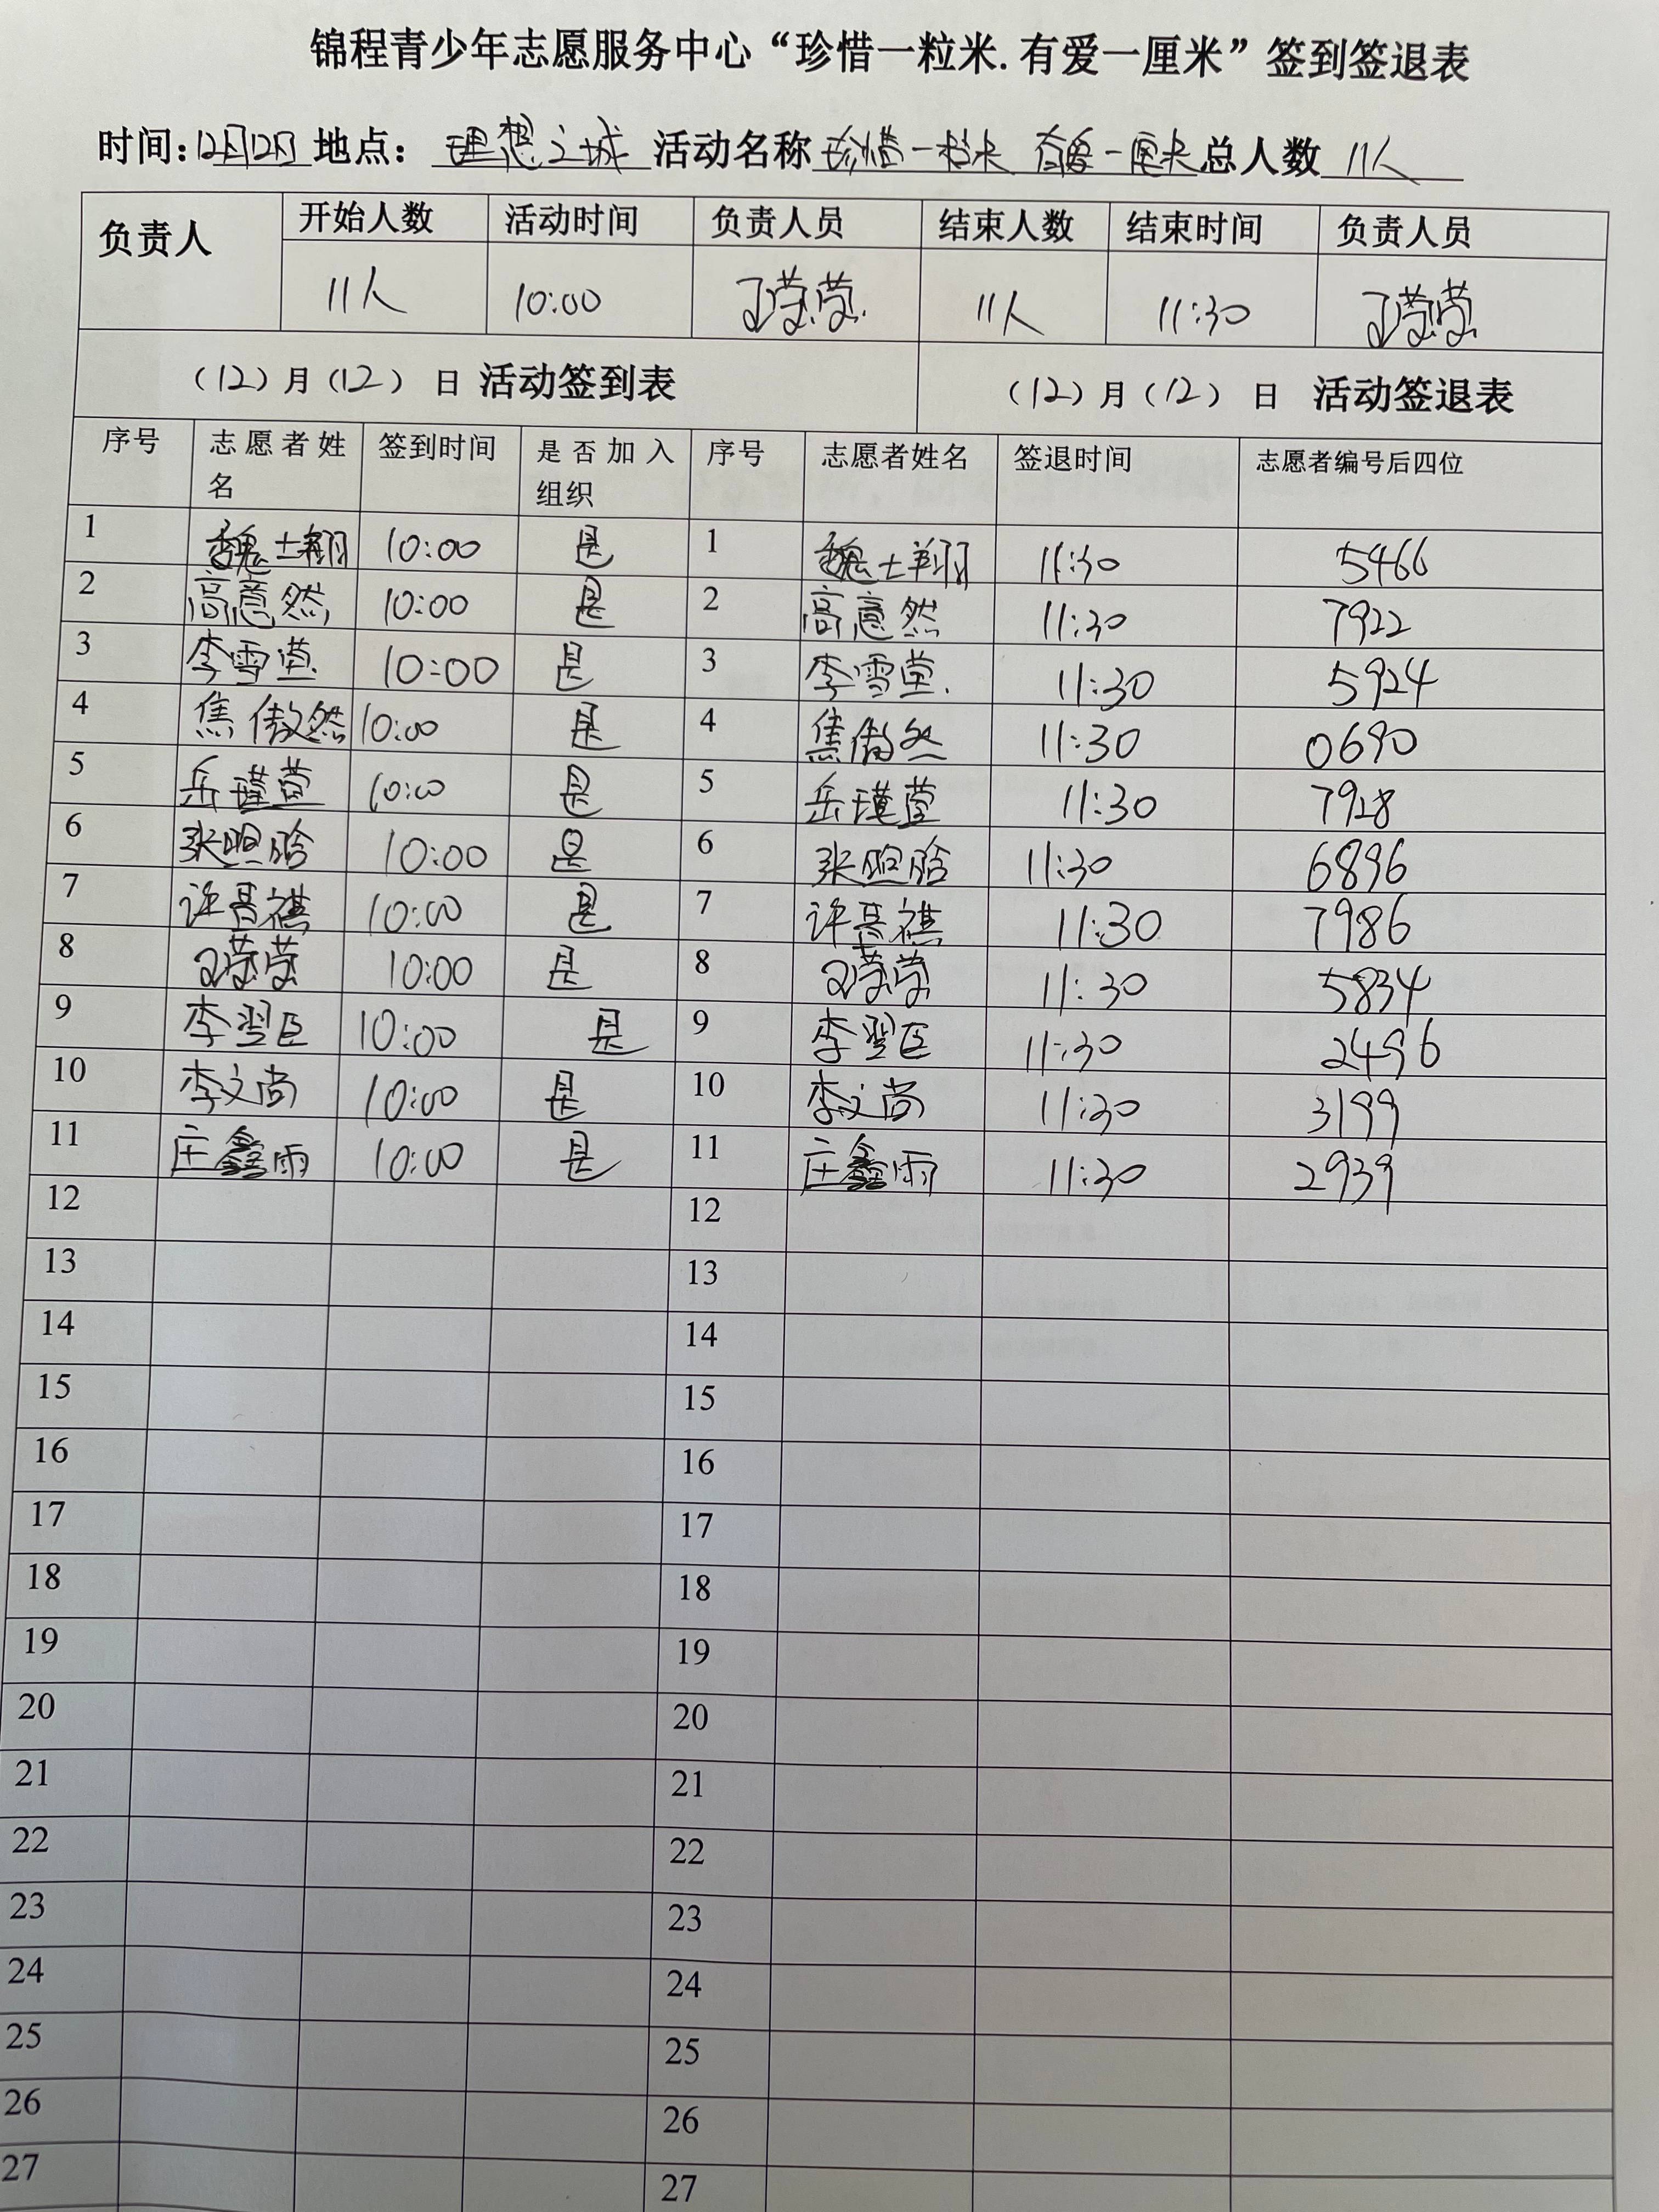 锦程青少年志愿服务中心“珍惜一粒米.有爱一厘米”签到签退表
时间:12月12日 地点: 理想之城 活动名称 珍惜一粒米 有爱一厘米 总人数 11人
负责人 开始人数 活动时间 负责人员 结束人数 结束时间 负责人员
11人 10:00 王莹莹 11人 11:30 王莹莹
(12)月(12)日 活动签到表 (12)月(12)日 活动签退表
序号 志愿者姓名 签到时间 是否加入组织 序号 志愿者姓名 签退时间 志愿者编号后四位
1 魏士翔 10:00 是 1 魏士翔 11:30 5466
2 高意然 10:00 是 2 高意然 11:30 7922
3 李雪莹 10:00 是 3 李雪莹 11:30 5924
4 焦傲然 10:00 是 4 焦傲然 11:30 0690
5 岳瑾萱 10:00 是 5 岳瑾萱 11:30 7928
6 10:00 是 6 11:30 6896
7 许晋祺 10:00 是 7 许晋祺 11:30 7986
8 王莹莹 10:00 是 8 王莹莹 11:30 5834
9 李翌臣 10:00 是 9 李翌臣 11:30 2496
10 李文尚 10:00 是 10 李文尚 11:30 3199
11 庄鑫雨 10:00 是 11 庄鑫雨 11:30 2939
12 12
13 13
14 14
15 15
16 16
17 17
18 18
19 19
20 20
21 21
22 22
23 23
24 24
25 25
26 26
27 27